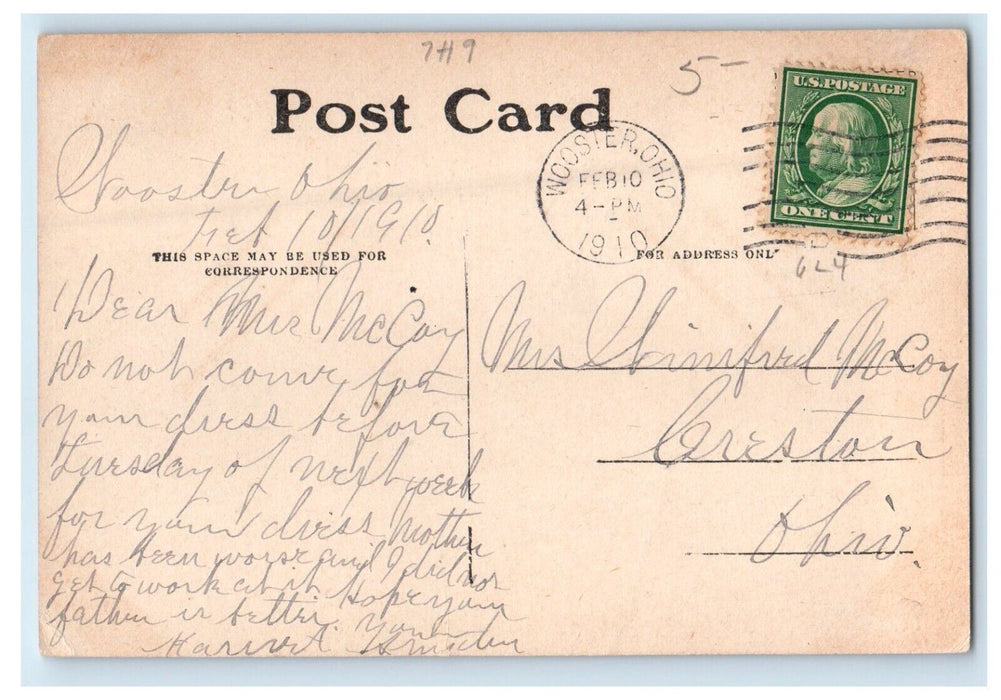 7H9
5-
Post Card
U.S. POSTAGE
ONE CENT
WOOSTER, OHIO
FEB 10
4-PM
1910
D
624
Wooster Ohio
Feb 10/1910
THIS SPACE MAY BE USED FOR
CORRESPONDENCE
FOR ADDRESS ONL
Dear Mrs McCoy
Do not come for
your dress before
tuesday of next week
for your dress Mother
has been worse and I did not
get to work at it hope your
father is better. Yours
Harriet
Mrs Winifred McCoy
Creston
Ohio.